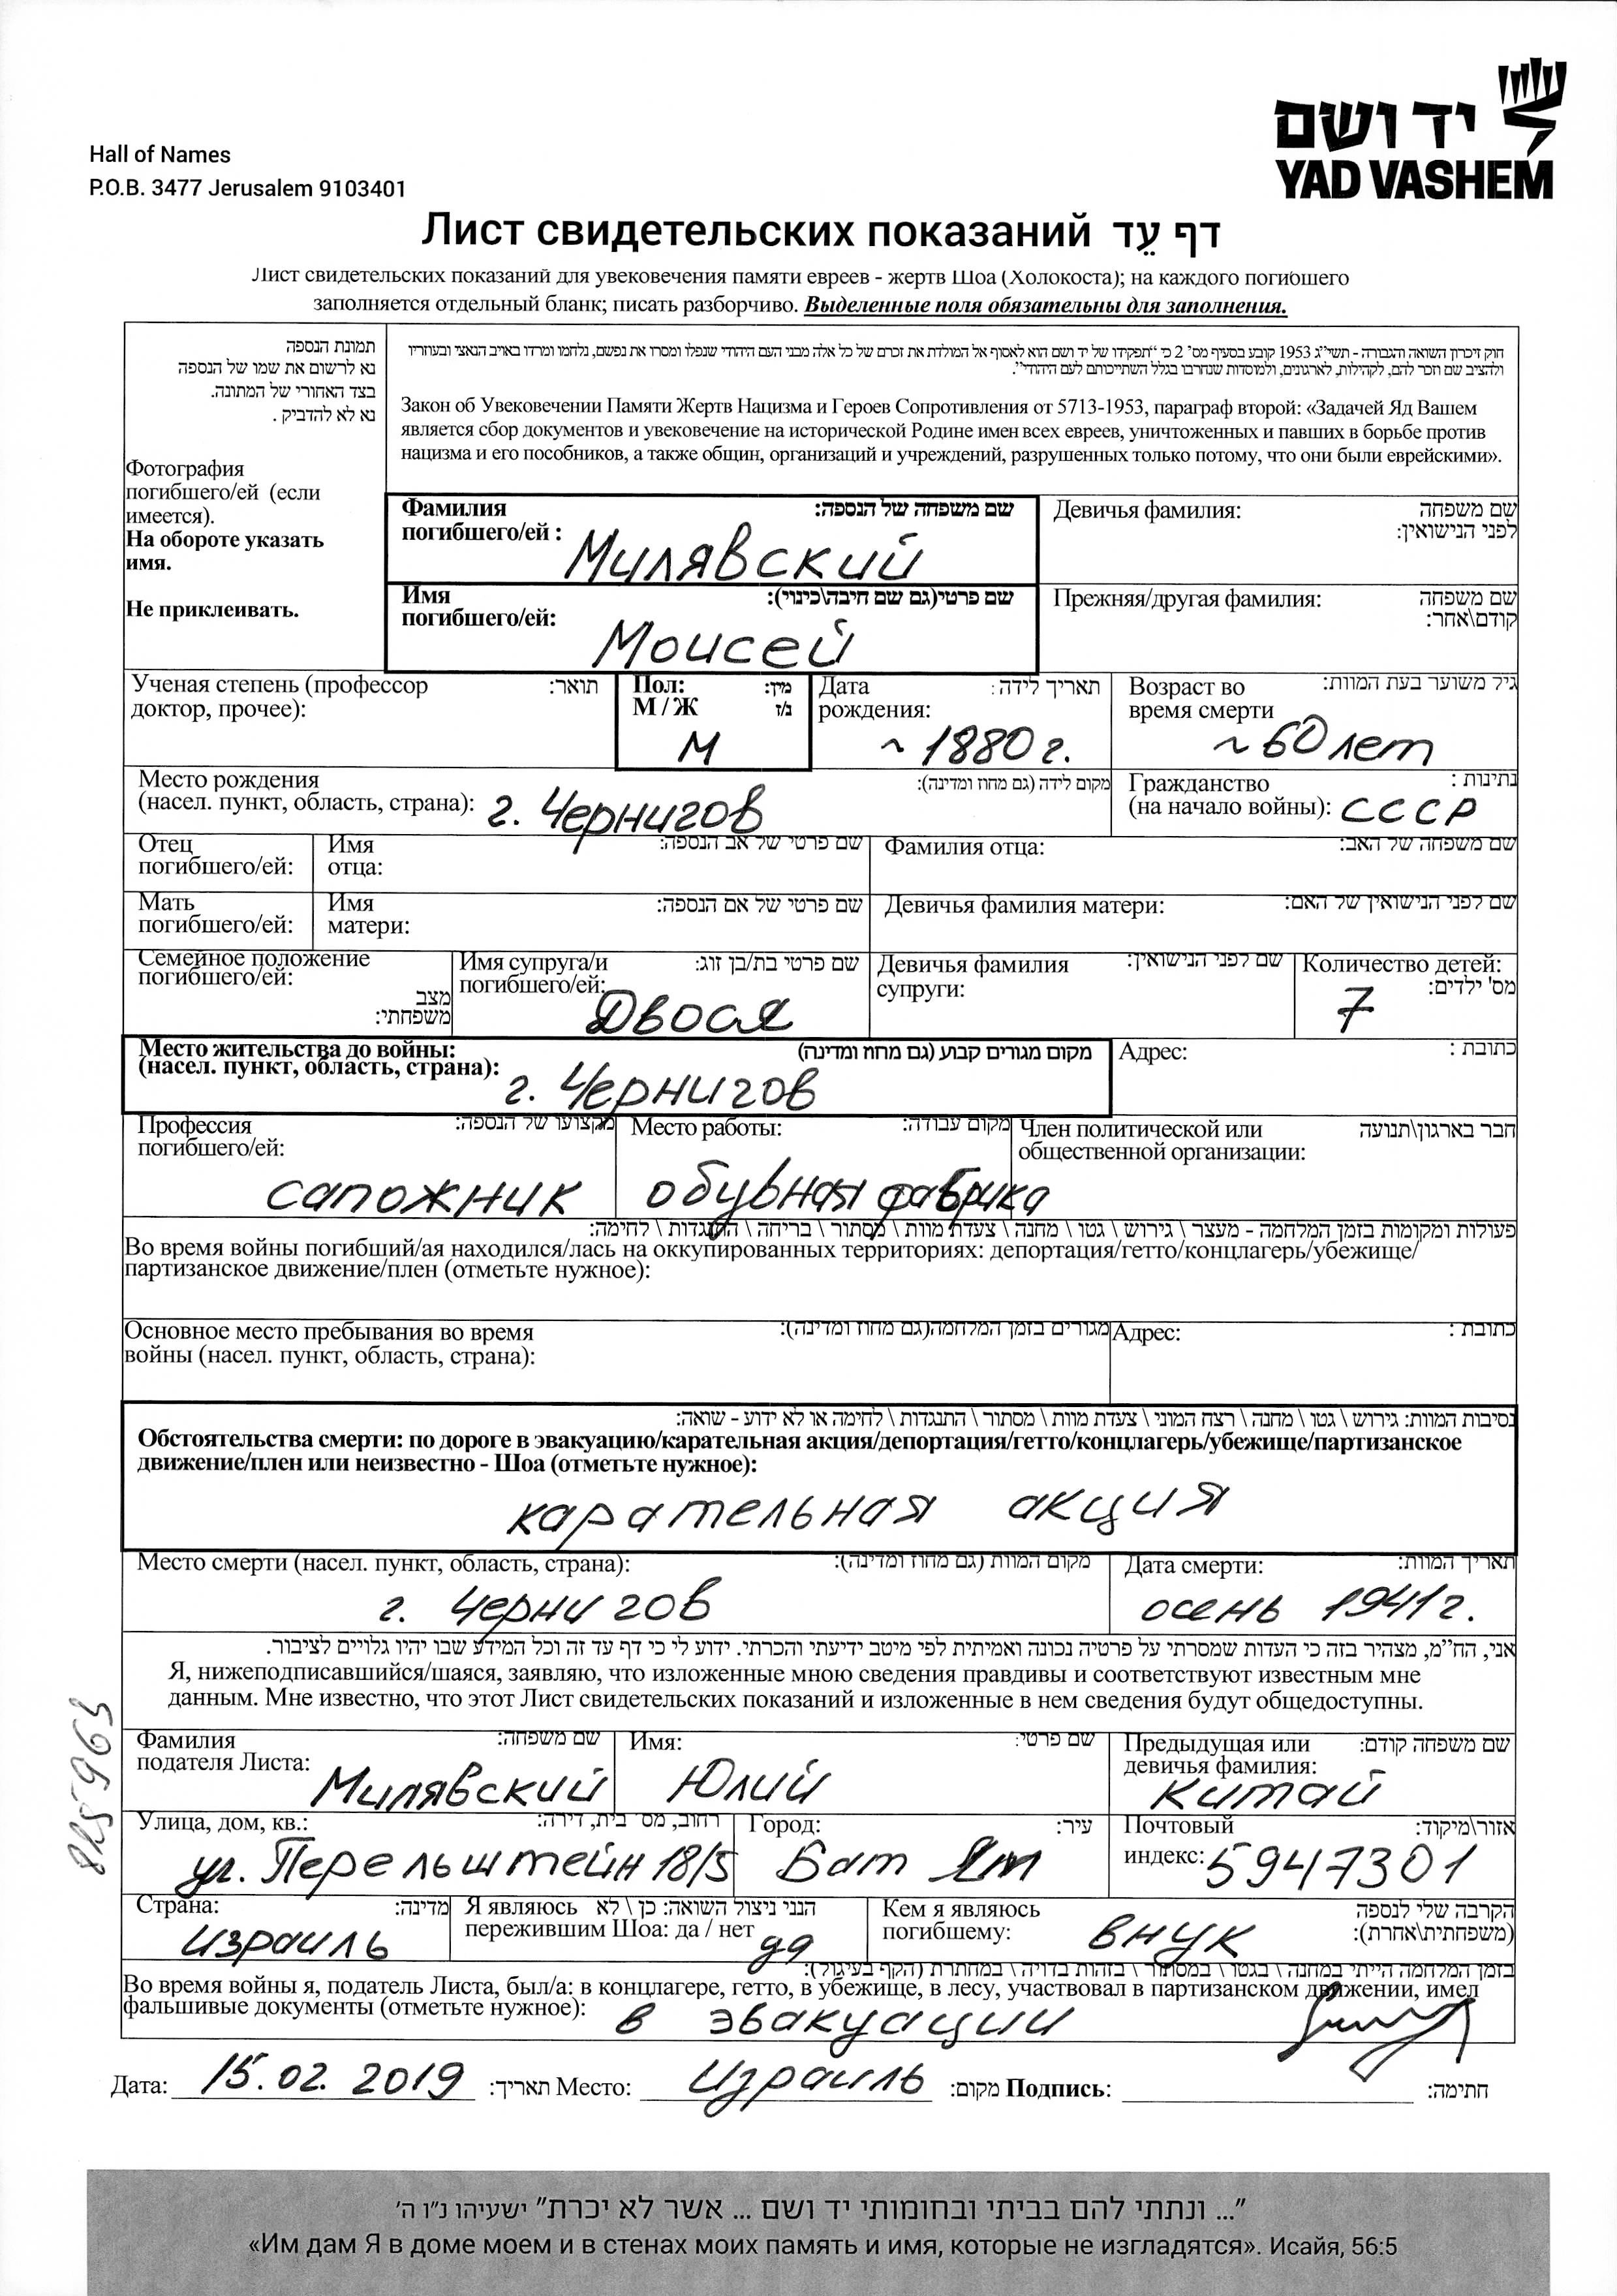 יד ושם
YAD VASHEM
Hall of Names
P.O.B. 3477 Jerusalem 9103401
Лист свидетельских показаний דף עֵד
Лист свидетельских показаний для увековечения памяти евреев - жертв Шоа (Холокоста); на каждого погибшего
заполняется отдельный бланк; писать разборчиво. Выделенные поля обязательны для заполнения.
תמונת הנספה
נא לרשום את שמו של הנספה
בצד האחורי של המתונה.
נא לא להדביק .
Фотография
погибшего/ей (если
имеется).
На обороте указать
имя.
Не приклеивать.
חוק זיכרון השואה והגבורה - תשי"ג 1953 קובע בסעיף מס' 2 כי "תפקידו של יד ושם הוא לאסוף אל המולדת את זכרם של כל אלה מבני העם היהודי שנפלו ומסרו את נפשם, נלחמו ומרדו באויב הנאצי ובעוזריו
ולהציב שם וזכר להם, לקהילות, לארגונים, ולמוסדות שנחרבו בגלל השתייכותם לעם היהודי".
Закон об Увековечении Памяти Жертв Нацизма и Героев Сопротивления от 5713-1953, параграф второй: «Задачей Яд Вашем
является сбор документов и увековечение на исторической Родине имен всех евреев, уничтоженных и павших в борьбе против
нацизма и его пособников, а также общин, организаций и учреждений, разрушенных только потому, что они были еврейскими».
Фамилия שם משפחה של הנספה:
погибшего/ей :
Милявский
Девичья фамилия: שם משפחה
לפני הנישואין:
Имя שם פרטי(גם שם חיבה\כינוי):
погибшего/ей:
Моисей
Прежняя/другая фамилия: שם משפחה
קודם\אחר:
Ученая степень (профессор תואר:
доктор, прочее):
Пол: מין:
М / Ж ז/נ
М
Дата תאריך לידה:
рождения:
~ 1880 г.
Возраст во גיל משוער בעת המוות:
время смерти
~ 60 лет
Место рождения מקום לידה (גם מחוז ומדינה):
(насел. пункт, область, страна): г. Чернигов
Гражданство נתינות :
(на начало войны): СССР
Отец
погибшего/ей:
Имя שם פרטי של אב הנספה:
отца:
Фамилия отца: שם משפחה של האב:
Мать
погибшего/ей:
Имя שם פרטי של אם הנספה:
матери:
Девичья фамилия матери: שם לפני הנישואין של האם:
Семейное положение
погибшего/ей:
מצב
משפחתי:
Имя супруга/и שם פרטי בת/בן זוג:
погибшего/ей:
Двося
Девичья фамилия שם לפני הנישואין:
супруги:
Количество детей:
מס' ילדים:
7
Место жительства до войны: מקום מגורים קבוע (גם מחוז ומדינה)
(насел. пункт, область, страна): г. Чернигов
Адрес: כתובת :
Профессия מקצועו של הנספה:
погибшего/ей:
сапожник
Место работы: מקום עבודה:
обувная фабрика
Член политической или חבר בארגון\תנועה
общественной организации:
פעולות ומקומות בזמן המלחמה - מעצר \ גירוש \ גטו \ מחנה \ צעדת מוות \ מסתור \ בריחה \ התנגדות \ לחימה:
Во время войны погибший/ая находился/лась на оккупированных территориях: депортация/гетто/концлагерь/убежище/
партизанское движение/плен (отметьте нужное):
Основное место пребывания во время מגורים בזמן המלחמה(גם מחוז ומדינה):
войны (насел. пункт, область, страна):
Адрес: כתובת :
נסיבות המוות: גירוש \ גטו \ מחנה \ רצח המוני \ צעדת מוות \ מסתור \ התנגדות \ לחימה או לא ידוע - שואה:
Обстоятельства смерти: по дороге в эвакуацию/карательная акция/депортация/гетто/концлагерь/убежище/партизанское
движение/плен или неизвестно - Шоа (отметьте нужное):
карательная акция
Место смерти (насел. пункт, область, страна): מקום המוות (גם מחוז ומדינה):
г. Чернигов
Дата смерти: תאריך המוות:
осень 1941г.
אני, הח"מ, מצהיר בזה כי העדות שמסרתי על פרטיה נכונה ואמיתית לפי מיטב ידיעתי והכרתי. ידוע לי כי דף עד זה וכל המידע שבו יהיו גלויים לציבור.
Я, нижеподписавшийся/шаяся, заявляю, что изложенные мною сведения правдивы и соответствуют известным мне
данным. Мне известно, что этот Лист свидетельских показаний и изложенные в нем сведения будут общедоступны.
Фамилия שם משפחה:
подателя Листа: Милявский
Имя: שם פרטי:
Юлий
Предыдущая или שם משפחה קודם:
девичья фамилия:
Китай
Улица, дом, кв.: רחוב, מס' בית, דירה:
ул. Перельштейн 18/5
Город: עיר:
Бат Ям
Почтовый אזור\מיקוד:
индекс: 5947301
Страна: מדינה:
Израиль
Я являюсь הנני ניצול השואה: כן \ לא
пережившим Шоа: да / нет да
Кем я являюсь הקרבה שלי לנספה
погибшему: внук (משפחתית\אחרת):
בזמן המלחמה הייתי במחנה \ בגטו \ במסתור \ בזהות בדויה \ במחתרת (הקף בעיגול):
Во время войны я, податель Листа, был/а: в концлагере, гетто, в убежище, в лесу, участвовал в партизанском движении, имел
фальшивые документы (отметьте нужное): в эвакуации
Дата: 15.02.2019 תאריך: Место: Израиль מקום: Подпись: חתימה:
"... ונתתי להם בביתי ובחומותי יד ושם ... אשר לא יכרת" ישעיהו נ"ו ה'
«Им дам Я в доме моем и в стенах моих память и имя, которые не изгладятся». Исайя, 56:5